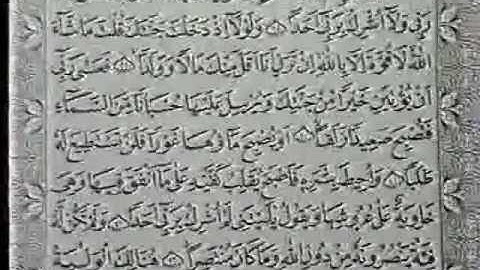 رَبِّي وَلَآ أُشْرِكُ بِرَبِّيٓ أَحَدًا ۝ وَلَوْلَآ إِذْ دَخَلْتَ جَنَّتَكَ قُلْتَ مَا شَآءَ
اللهُ لَا قُوَّةَ إِلَّا بِاللهِ إِنْ تَرَنِ أَنَا أَقَلَّ مِنْكَ مَالًا وَوَلَدًا ۝ فَعَسَى رَبِّيٓ
أَنْ يُؤْتِيَنِ خَيْرًا مِنْ جَنَّتِكَ وَيُرْسِلَ عَلَيْهَا حُسْبَانًا مِنَ السَّمَآءِ
فَتُصْبِحَ صَعِيدًا زَلَقًا ۝ أَوْ يُصْبِحَ مَآؤُهَا غَوْرًا فَلَنْ تَسْتَطِيعَ لَهُ
طَلَبًا ۝ وَأُحِيطَ بِثَمَرِهِ فَأَصْبَحَ يُقَلِّبُ كَفَّيْهِ عَلَى مَآ أَنْفَقَ فِيهَا وَهِيَ
خَاوِيَةٌ عَلَى عُرُوشِهَا وَيَقُولُ يَا لَيْتَنِي لَمْ أُشْرِكْ بِرَبِّيٓ أَحَدًا ۝ وَلَمْ تَكُنْ لَهُ
فِئَةٌ يَنْصُرُونَهُ مِنْ دُونِ اللهِ وَمَا كَانَ مُنْتَصِرًا ۝ هُنَالِكَ الْوَلَايَةُ